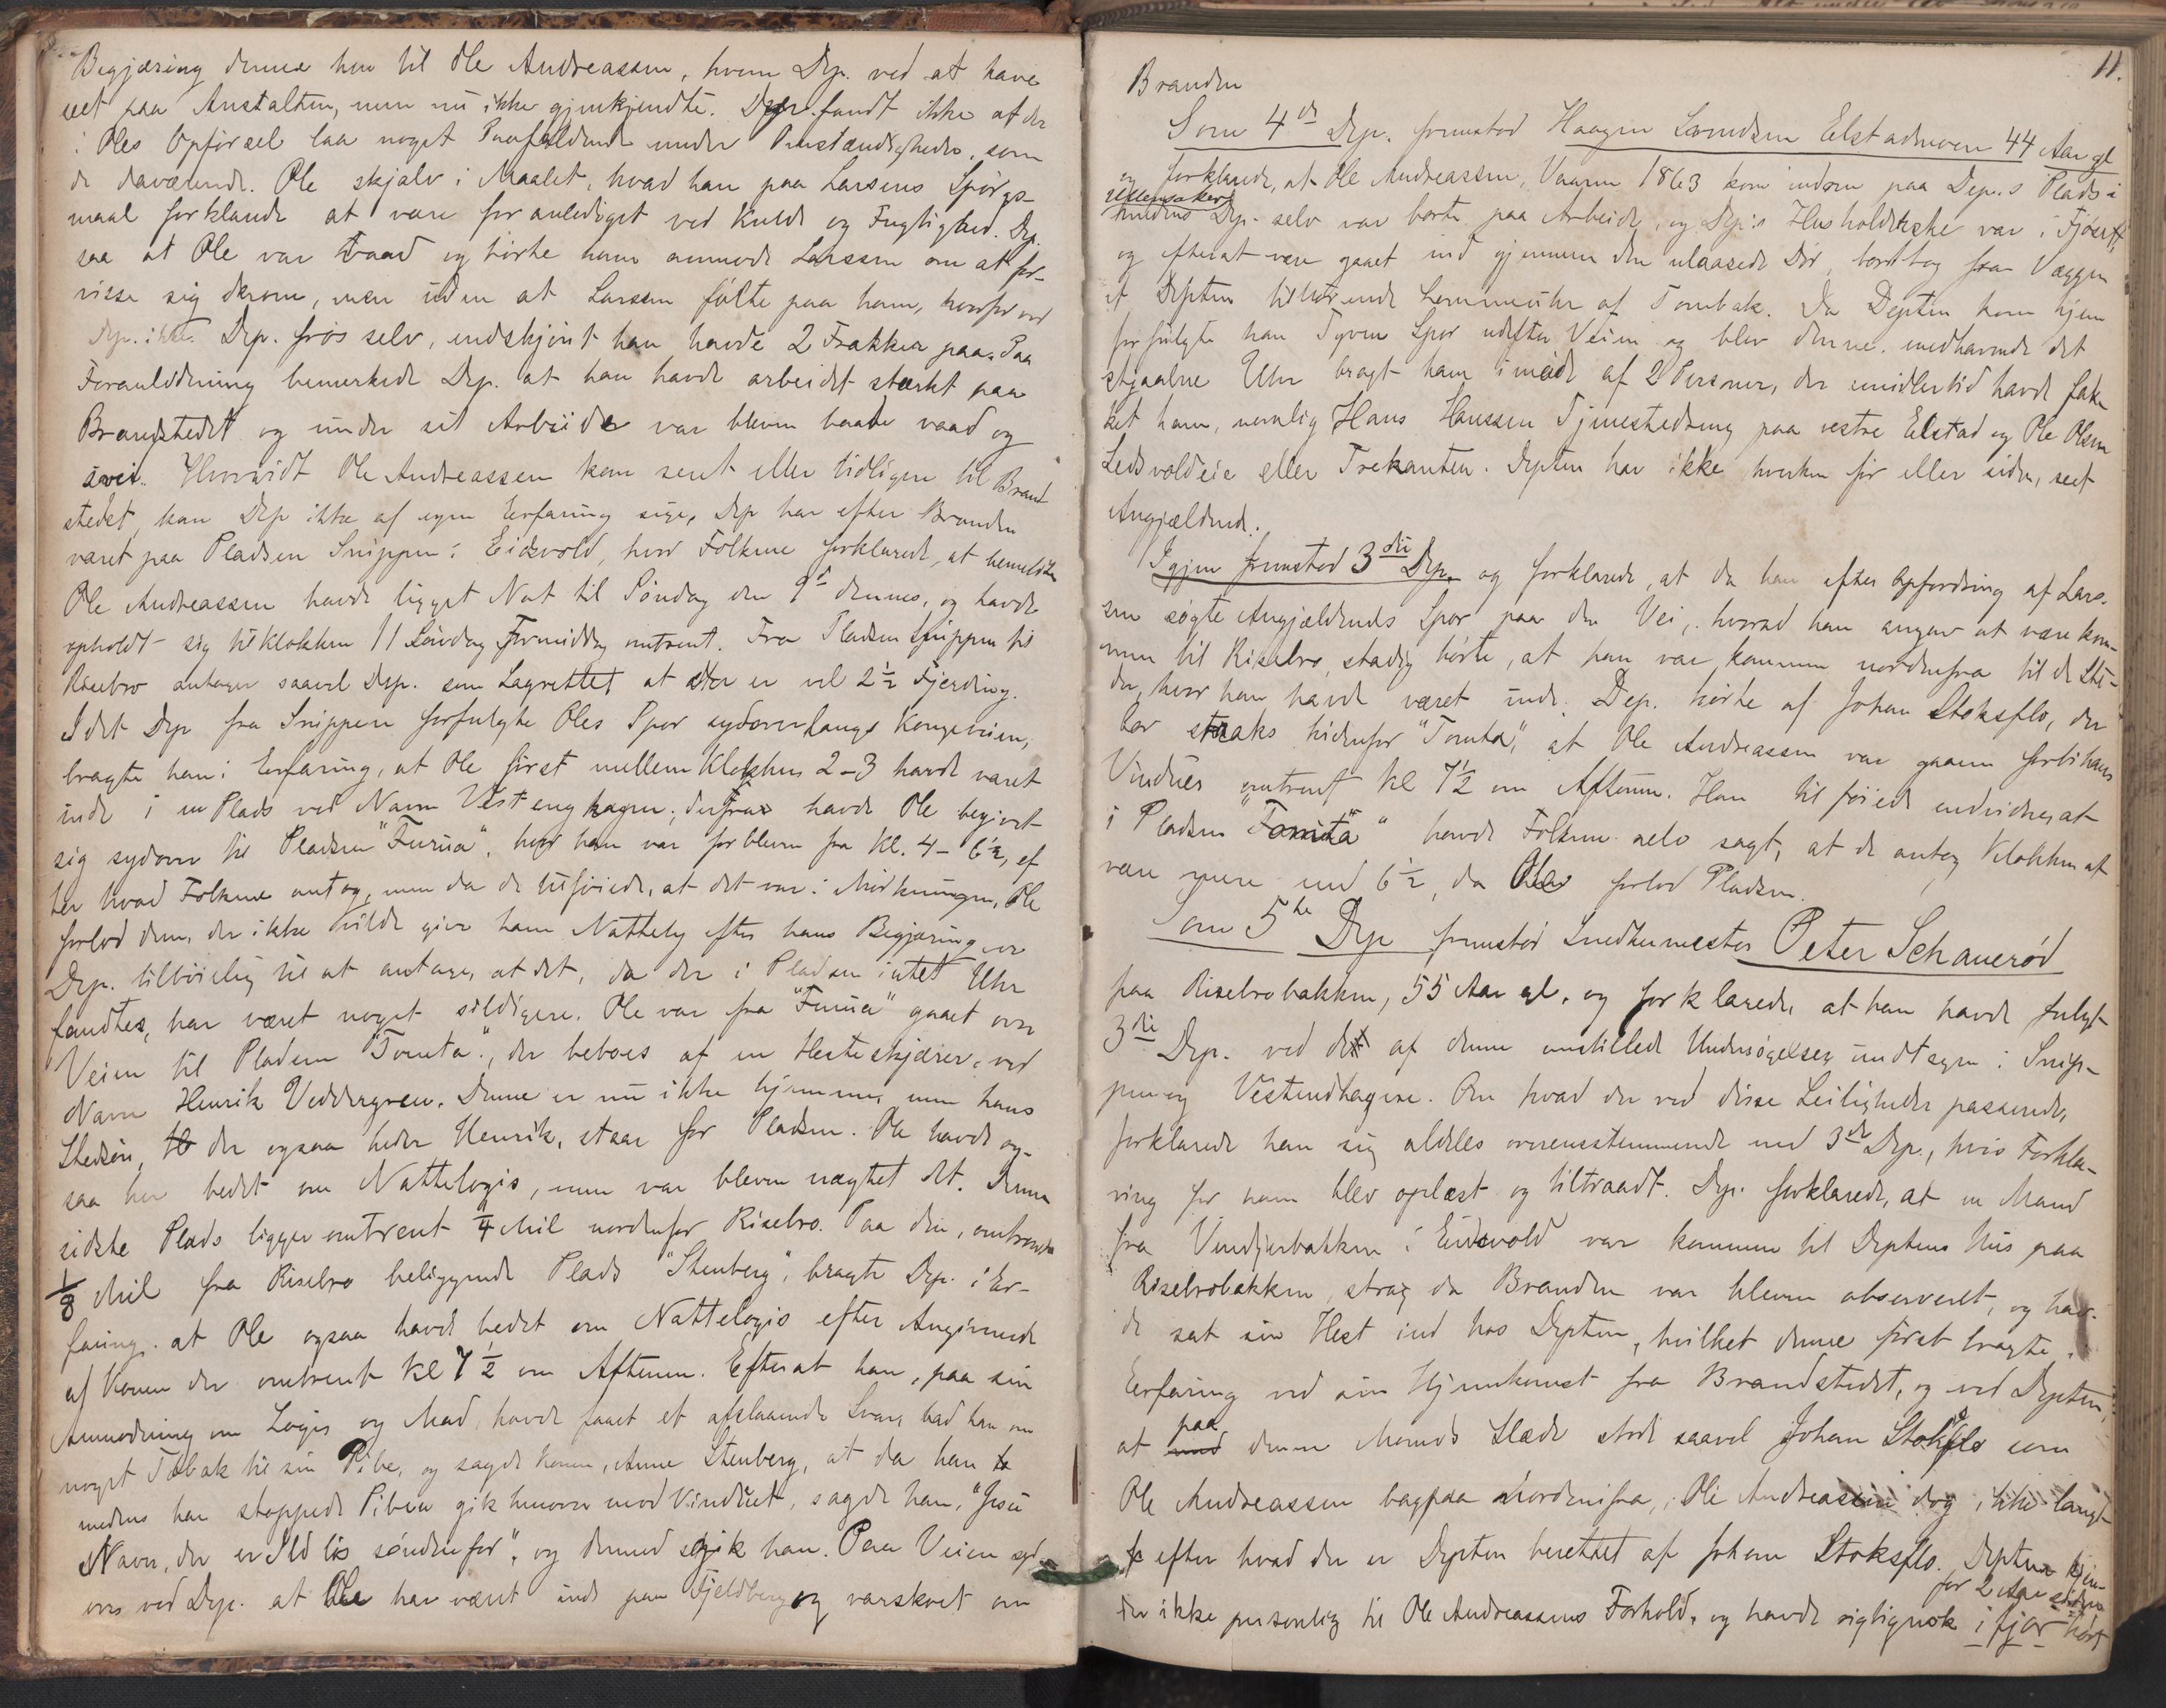 Begjæring denne hen til Ole Andreassen, hvem Dep. ved at have
seet paa Anstalten, men nu ikke gjenkjendte. Dep. fandt ikke at der
i Oles Opførsel laa noget Paafaldende under Omstændigheder, som
de daværende. Ole skjalv i Maalet, hvad han paa Larsens Spørgs-
maal forklarede at være foranlediget ved Kulde og Fugtighed. Dep.
saa at Ole var vaad og hørte ham anmode Larssen om at for-
visse sig derom, men uden at Larssen følte paa ham, hvorfor ved
Dep. ikke. Dep. frøs selv, endskjønt han havde 2 Frakker paa. Paa
Foranledning bemerkede Dep. at han havde arbeidet stærkt paa
Brandstedet og under sit Arbeide var bleven baade vaad og
sved. Hvorvidt Ole Andreassen kom sent eller tidligere til Brand
stedet, kan Dep ikke af egen Erfaring sige, Dep har efter Branden
været paa Pladsen Snippen i Eidsvold, hvor Folkene forklarede, at bemeldte
Ole Andreassen havde ligget Nat til Søndag den 9de dennes, og havde
opholdt sig til Klokken 11 Søndag Formiddag omtrent. Fra Pladsen Snippen til
Risebro antager saavel Dep. som Lagrettet at der er vel 2½ Fjerding.
Idet Dep fra Snippen forfulgte Oles Spor sydover langs Kongeveien,
bragte han i Erfaring, at Ole først mellem Klokken 2-3 havde været
inde i en Plads ved Navn Vestenghagen; derfra havde Ole begivet
sig sydover til Pladsen "Furua", hvor han var forbleven fra Kl. 4- 6½, ef
ter hvad Folkene antog, men da de tilføiede, at det var i Mørkningen, Ole
forlod dem, der ikke vilde give ham Nattely efter hans Begjæring er
Dep. tilbøielig til at antage, at det, da der i Pladsen intet Uhr
fandtes, har været noget sildigere. Ole var fra "Furua" gaaet over
Veien til Pladsen "Tomta", der beboes af en Hesteskjærer, ved
Navn Henrik Veddergren. Denne er nu ikke hjemme, men hans
Stedsøn, der ogsaa heder Henrik, staar for Pladsen. Ole havde og-
saa her bedet om Nattelogis, men var bleven nægtet det. Denne
sidste Plads ligger omtrent ¼ Mil nordenfor Risebro. Paa den, omtrent
1/8 Mil fra Risebro beliggende Plads "Stenberg", bragte Dep. i Er-
faring, at Ole ogsaa havde bedet om Nattelogis efter Angivende
af Konen der omtrent Kl 7½ om Aftenen. Efterat han, paa sin
Anmodning om Logis og Mad, havde faaet et afslaaende Svar, bad han om
noget Tobak til sin Pibe, og sagde Konen, Anne Stenberg, at da han
medens han stoppede Piben gik henover mod Vinduet, sagde han, "Jesu
Navn, der er Ild løs søndenfor", og dermed gik han. Paa Veien syd-
over ved Dep. at Ole har været inde paa Fjeldberg og varskoet om
11.
Branden
Som 4de Dep. fremstod Haagen Svendsen Elstadmoen 44 Aar gl
og forklarede, at Ole Andreassen, Vaaren 1863 kom indom paa Dep.s Plads i
Ullensaker
medens Dep. selv var borte paa Arbeide, og Dep:s Husholderske var i Fjøset,
og efterat være gaaet ind gjennem den ulaasede Dør, borttog fra Væggen
et Depten tilhørende Lommeuhr af Tombak. Da Depten kom hjem
forfulgte han Tyvens Spor udefter Veien og blev denne, medhavende det
stjaalne Uhr bragt ham imøde af 2 Personer, der imidlertid havde fak-
ket ham, nemlig Hans Hanssen Tjenestedreng paa vestre Elstad og Ole Olsen
Ledsvoldeie eller Trekanten. Depten har ikke hverken før eller siden, seet
Angjældende.
Igjen fremstod 3die Dep. og forklarede, at da han efter Opfordring af Lars-
sen søgte Angjældendes Spor paa den Vei, hvorad han angav at være kom-
men til Risebro, stadig hørte, at han var kommen nordenfra til de Ste-
der, hvor han havde været inde. Dep. hørte af Johan Stoksflo, der
bor straks hidenfor "Tomta", at Ole Andreassen var gaaen forbi hans
Vinduer omtrent Kl 7½ om Aftenen. Han tilføiede endvidere at
i Pladsen "Tomta" havde Folkene selv sagt, at de antog Klokken at
være mere end 6½, da Ole forlod Pladsen.
Som 5te Dep fremstod Snedkermester Peter Schauerød
paa Risebrobakken, 55 Aar gl. og forklarede, at han havde fulgt
3die Dep. ved de af denne anstillede Undersøgelser undtagen i Snip-
pen og Vestenghagen. Om hvad der ved disse Leiligheder passerede,
forklarede han sig aldeles overensstemmende med 3die Dep., hvis Forkla-
ring for ham blev oplæst og tiltraadt. Dep. forklarede, at en Mand
fra Vendjerbakken i Eidsvold var kommen til Deptens Hus paa
Risebrobakken, strax da Branden var bleven observeret, og hav-
de sat sin Hest ind hos Depten, hvilket denne først bragte i
Erfaring ved sin Hjemkomst fra Brandstedet, og ved Depten,
at paa denne Mands Slæde stod saavel Johan Stoksflo som
Ole Andreassen bagpaa nordenifra, Ole Andreassen dog ikke langt
efter hvad der er Depten berettet af Johan Stoksflo. Depten kjen-
der ikke personlig til Ole Andreassens Forhold, og havde rigtignok i fjor hørt
for 2 Aar siden